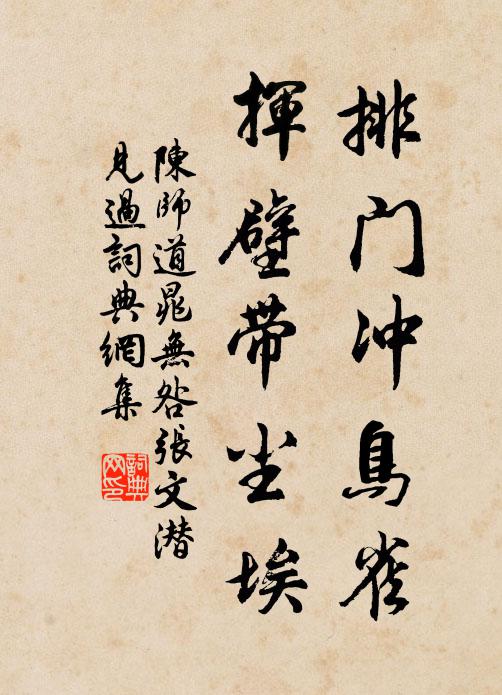 排门冲鳥雀
揮壁带尘埃
陳師道晁無咎張文潜
見過詞典網集
詞典网印